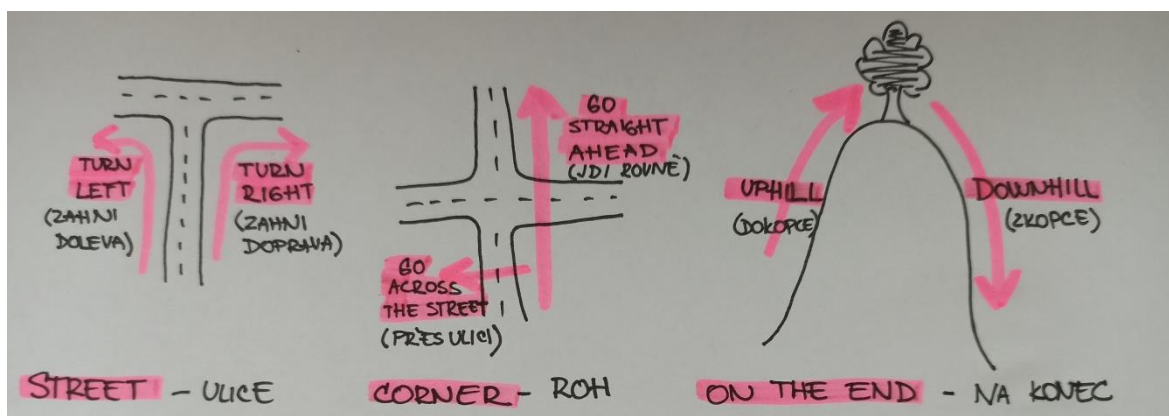 TURN
LEFT
(ZAHNI
DOLEVA)
TURN
RIGHT
(ZAHNI
DOPRAVA)
GO
STRAIGHT
AHEAD
(JDI ROVNĚ)
GO
ACROSS
THE STREET
(PŘES ULICI)
UPHILL
(DOKOPCE)
DOWNHILL
(ZKOPCE)
STREET - ULICE
CORNER - ROH
ON THE END - NA KONEC